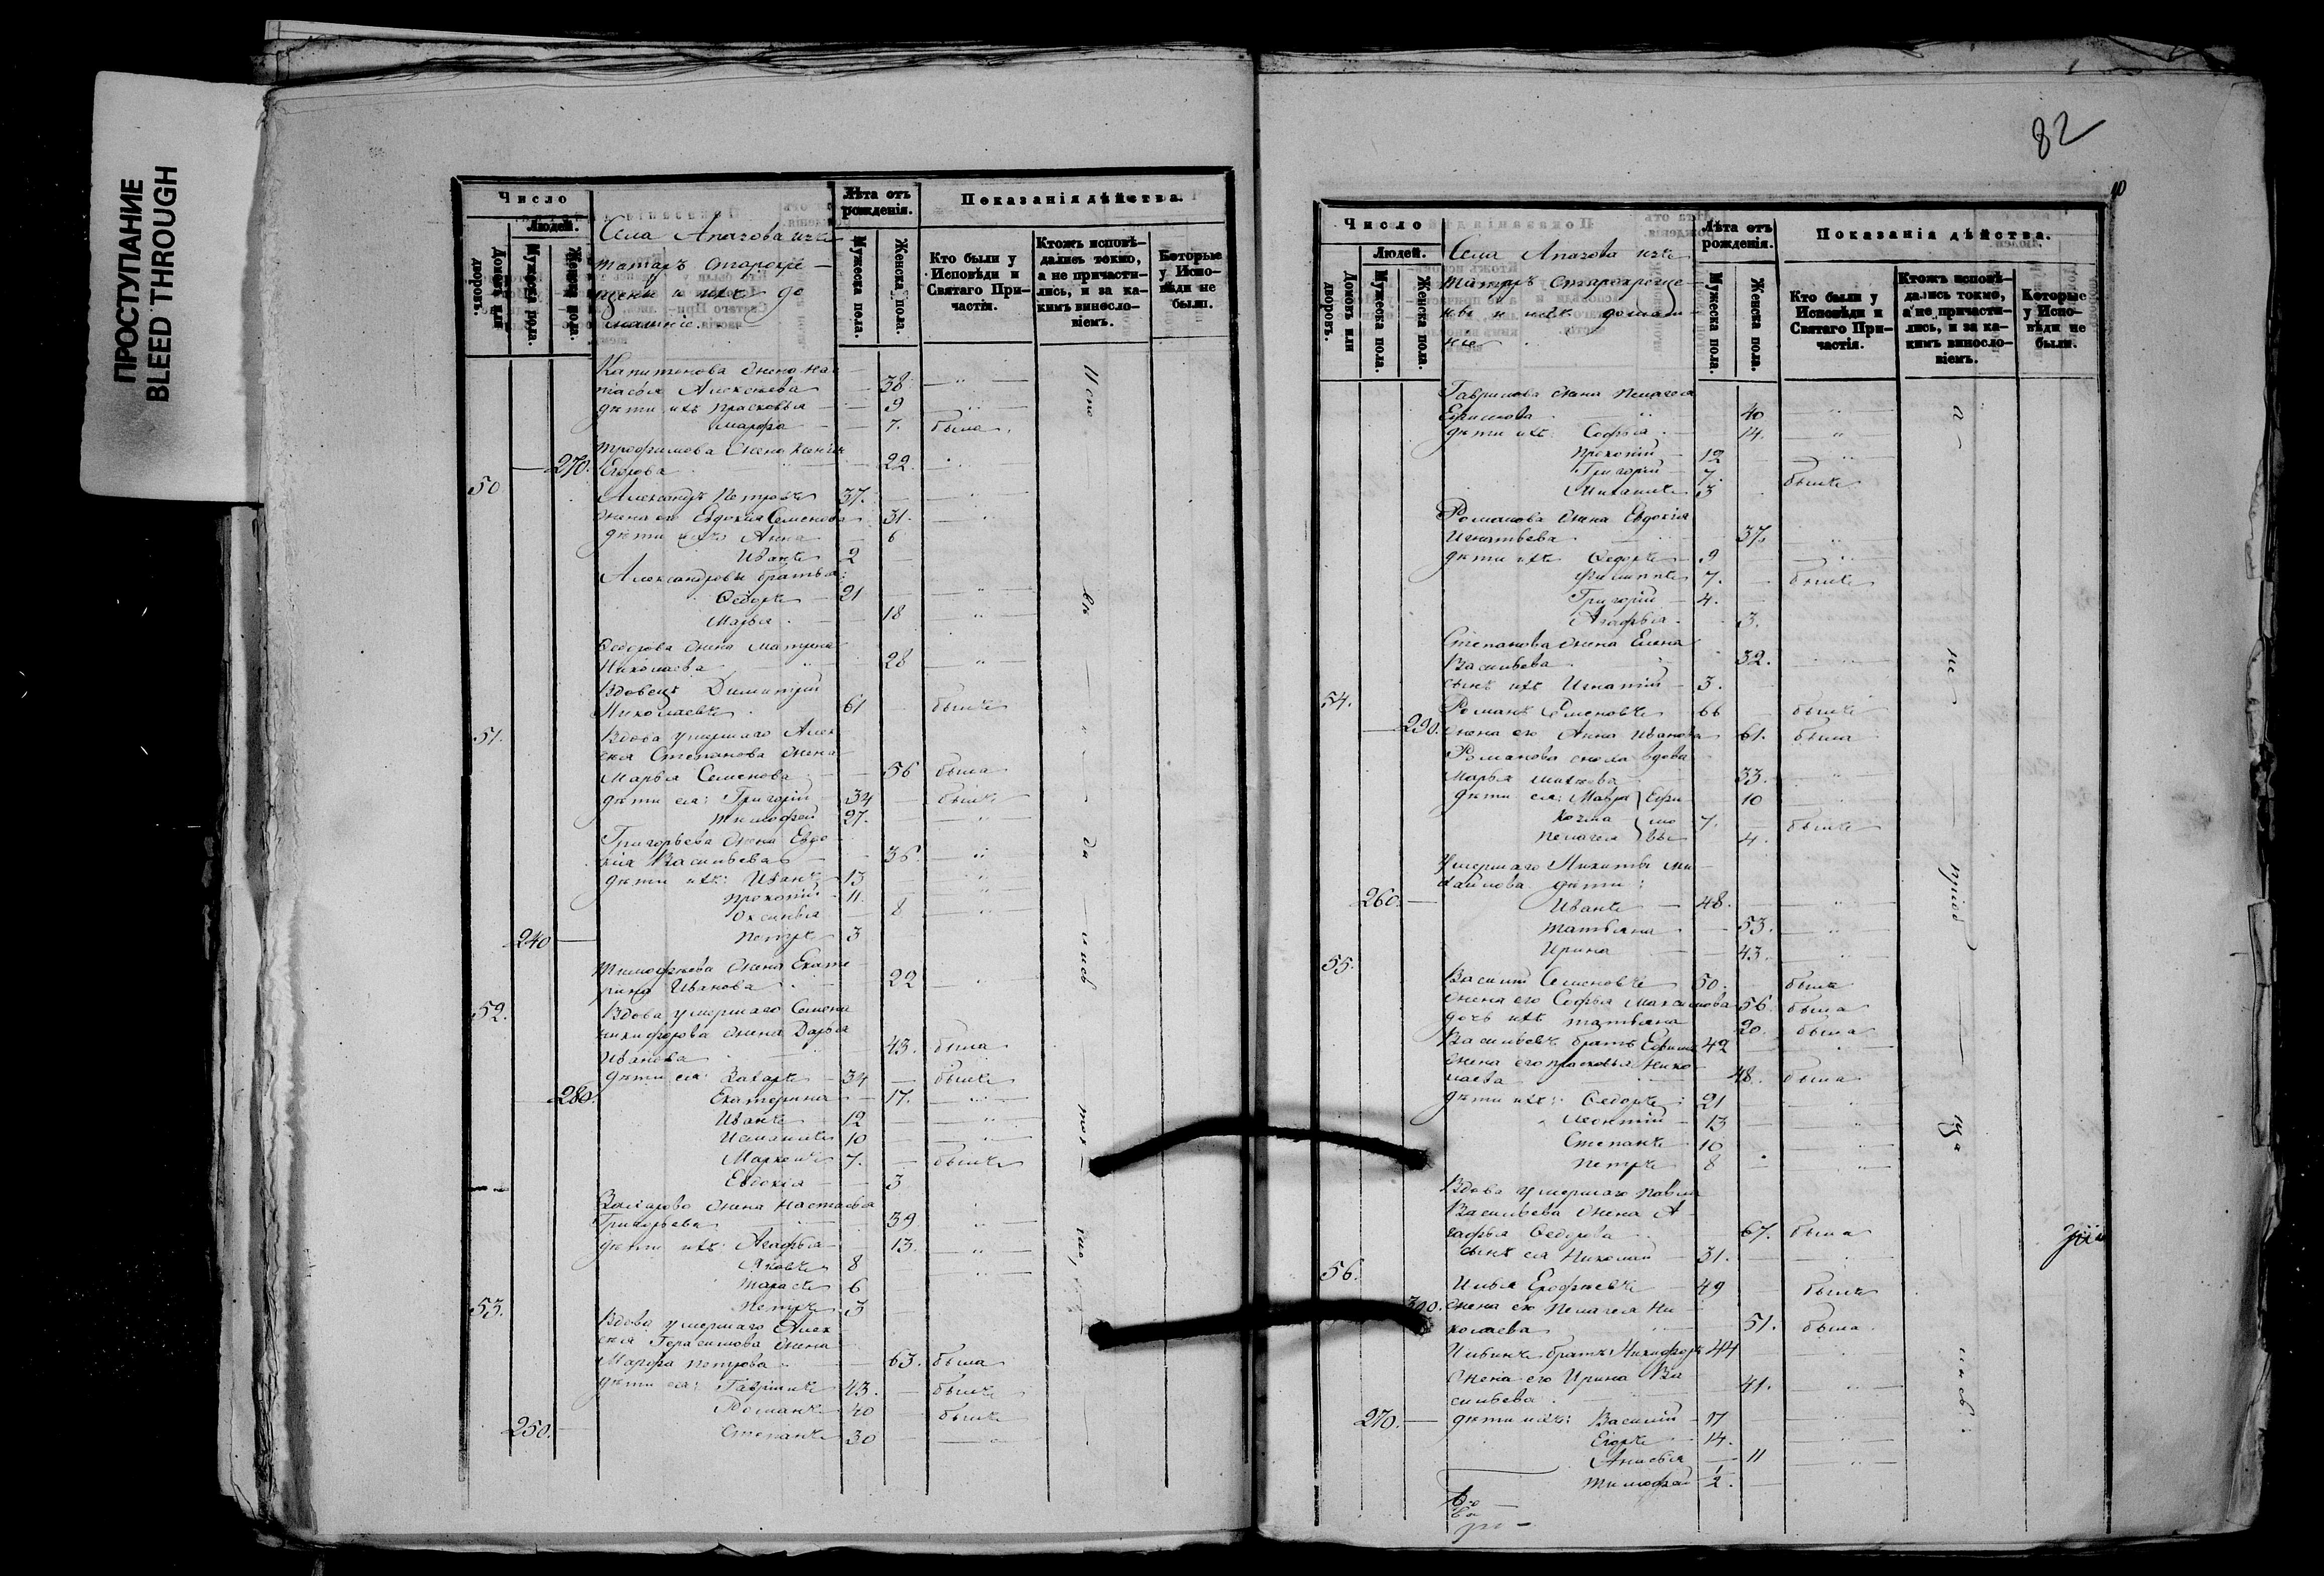 ПРОСТУПАНИЕ
BLEED THROUGH
Число
Людей.
Домовъ или дворовъ.
Мужеска пола.
Женска пола.
Села Апазова изъ
татаръ старокре-
щены и ихъ до
машніе.
Лѣта отъ рожденія.
Мужеска пола.
Женска пола.
Показанія дѣйства.
Кто были у Исповѣди и Святаго Причастія.
Ктожъ исповѣдались токмо, а не причастились, и за какимъ винословіемъ.
Которые у Исповѣди не были.
Капитонова жена Нас
тасья Алексѣева 38 "
дѣти ихъ Прасковья 9 "
Марфа 7. была
Трофимова жена Ксенія
270. Егорова 22. "
50 Александръ Петровъ 37. "
жена его Евдокія Семенова 31. "
дѣти ихъ Анна 6
Иванъ 2
Александровы братья:
Ѳедоръ 21 "
Марья 18 "
Ѳедорова жена Матрена
Николаева 28 "
Вдовецъ Димитрій
Николаевъ 61 былъ
51. Вдова умершаго Алек
сѣя Степанова жена
Марья Семенова 56 была
дѣти ея: Григорій 34 былъ
Тимофей 27. "
Григорьева жена Евдо
кія Васильева 36. "
дѣти ихъ: Иванъ 13 "
Прокопій 11. "
Оксинья 8 "
240 Петръ 3
Тимофѣева жена Екате
рина Иванова 22 "
52. Вдова умершаго Семена
Никифорова жена Дарья
Иванова 43. была
дѣти ея: Захаръ 34 былъ
280. Екатерина 17. "
Иванъ 12 "
10 "
7. былъ
Евдокія 3
Захарова жена Настасья
Григорьева 39 "
дѣти ихъ: Агафья 13. "
Яковъ 8 "
Тарасъ 6
Петръ 3
53. Вдова умершаго Алек
сѣя Герасимова жена
Марфа Петрова 63. была
дѣти ея: Гаврилъ 43. былъ
Романъ 40 былъ
250. Степанъ 30 "
82
Число
Людей.
Домовъ или дворовъ.
Мужеска пола.
Женска пола.
Села Апазова изъ
татаръ старокреще-
ны и ихъ домаш-
ніе
Лѣта отъ рожденія.
Мужеска пола.
Женска пола.
Показанія дѣйства.
Кто были у Исповѣди и Святаго Причастія.
Ктожъ исповѣдались токмо, а не причастились, и за какимъ винословіемъ.
Которые у Исповѣди не были.
Гаврилова жена Пелагея
Ефимова 40 "
дѣти ихъ: Софья 14. "
Прокопій 12 "
Григорій 7. былъ
Михаилъ 3
Романова жена Евдокія
Игнатьева 37. "
дѣти ихъ Ѳедоръ 9 "
Филиппъ 7. былъ
Григорій 4.
Агафья 3.
Степанова жена Елена
Васильева 32. "
сынъ ихъ Игнатій 3.
54. Романъ Семеновъ 66 былъ
290. жена его Анна Иванова 61. была
Романова сноха вдова
Марья 33. "
дѣти ея: Мавра 10 "
7. былъ
Пелагея 4.
Умершаго Никиты Ми
хайлова дѣти:
260. Иванъ 48. "
Татьяна 53. "
Ирина 43. "
55. Василій Семеновъ 50. былъ
жена его Софья Максимова 56. была
дочь ихъ Татьяна 20. была
Васильевъ братъ Ефимъ 42 "
жена его Прасковья Нико
лаева 48. была
дѣти ихъ: Ѳедоръ 21 "
Леонтій 13 "
Степанъ 10 "
Петръ 8 "
Вдова умершаго Павла
Васильева жена А
гафья Ѳедорова 67. была
сынъ ея Николай 31. "
56. Илья Ерофѣевъ 49 былъ
300. жена его Пелагея Ни-
колаева 51. была
Ильинъ братъ Никифоръ 44 "
жена его Ирина Ва
сильева 41. "
270. дѣти ихъ: Василій 17 "
Егоръ 14. "
Анисья 11 "
Тимофей 2.